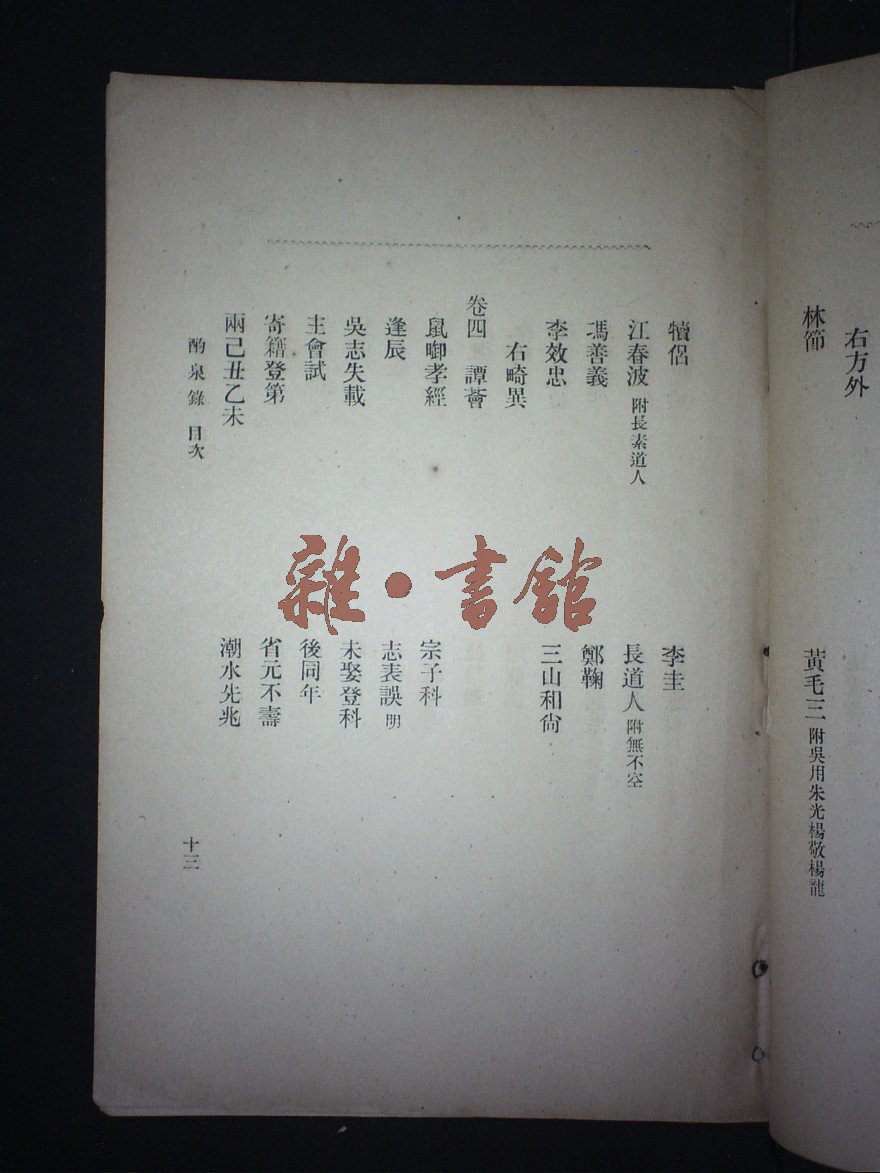 右方外
林節 黃毛三 附吳用朱光楊敬楊龍
犢侶 李圭
江春波 附長素道人 長道人 附無不空
馮善義 鄭鞠
李效忠 三山和尙
右畸異
卷四 譚薈
鼠啣孝經 宗子科
逢辰 志表誤 明
吳志失載 未娶登科
主會試 後同年
寄籍登第 省元不壽
兩己丑乙未 潮水先兆
酌泉錄 目次 十三
雜·書館